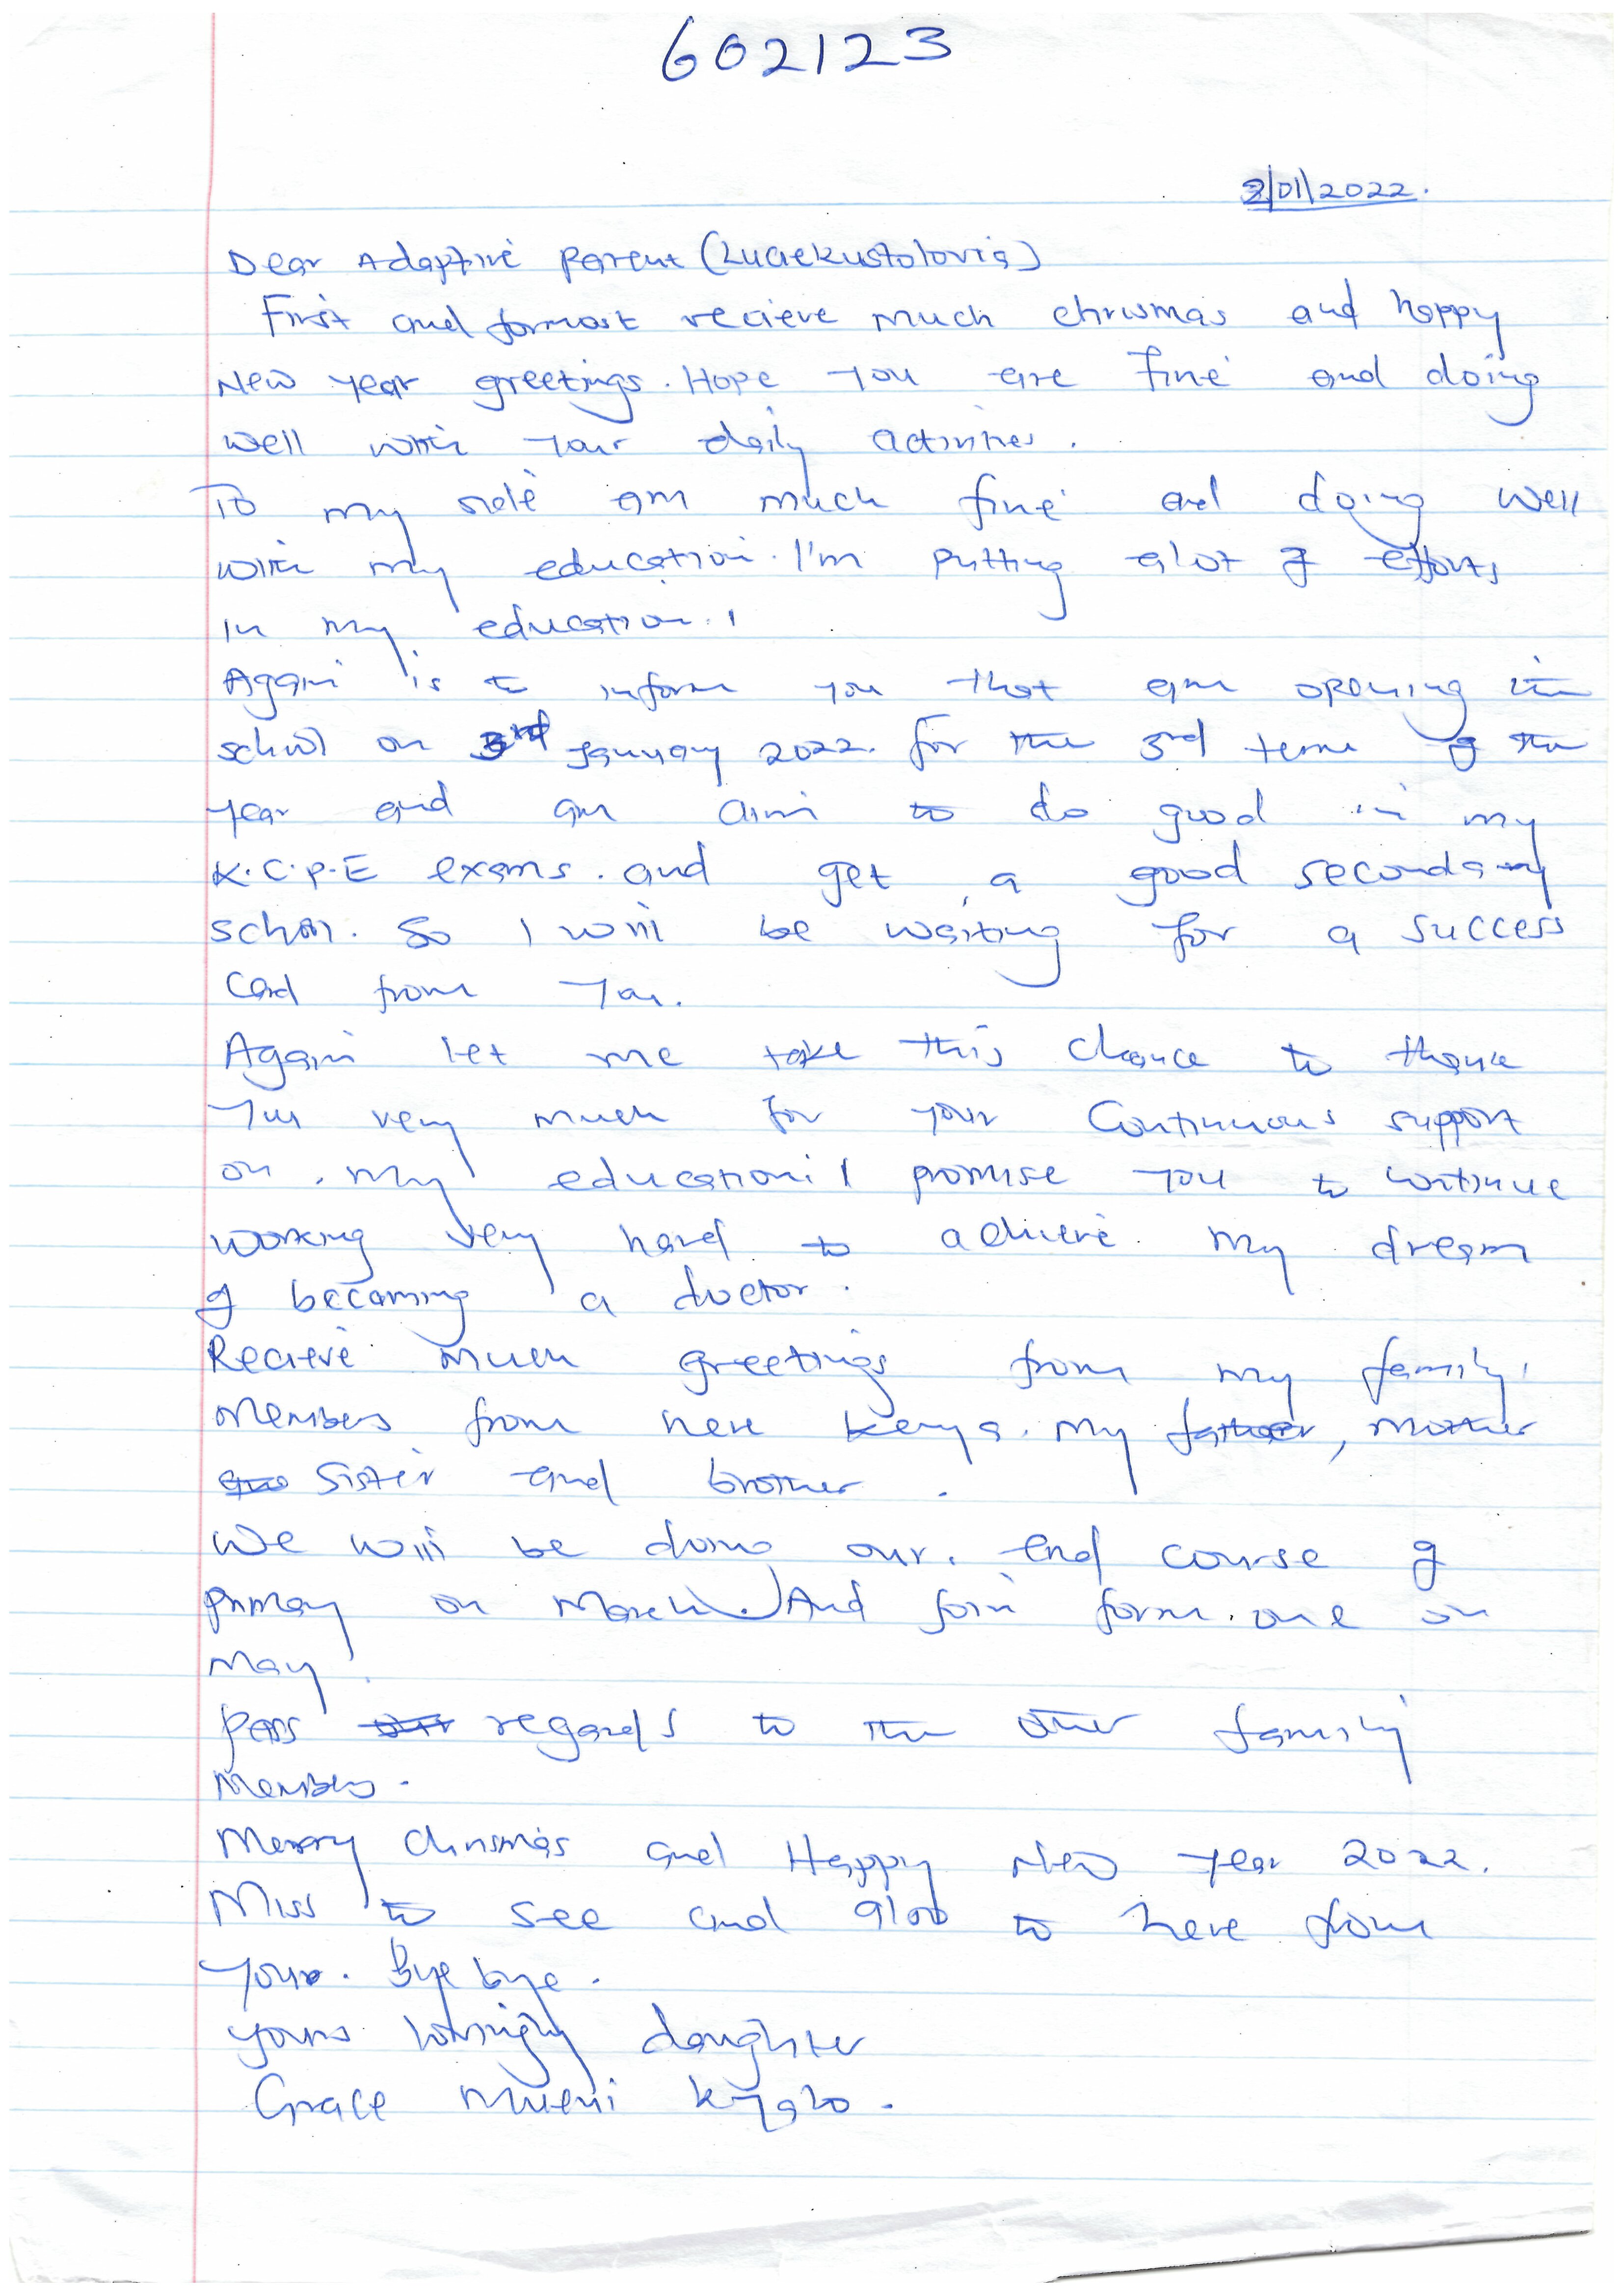 602123
2/01/2022.
Dear Adaptive parent (Luciekustolovis)
First and formost recieve much chrismas and happy
New year greetings. Hope you are fine and doing
well with your daily activities.
To my side am much fine and doing well
with my education. I'm putting alot of efforts
in my education.
Again is to inform you that am opening the
school on 3rd January 2022. for the 3rd term of the
year and am aim to do good in my
K.C.P.E exams. and get a good secondary
school. So I will be waiting for a success
Card from you.
Again let me take this chance to thank
you very much for your Continuous support
on my education. I promise you to continue
working very hard to achieve my dream
of becoming a doctor.
Recieve much greetings from my family
members from here kenya. my father, mother
sister and brother.
We will be doing our end course of
primary on March. And join form one on
may.
Pass regards to the other family
members.
Merry chrismas and Happy New year 2022.
Miss to see and glob to here from
your. Bye bye.
yours lovingly daughter
Grace Mueni Kyalo.